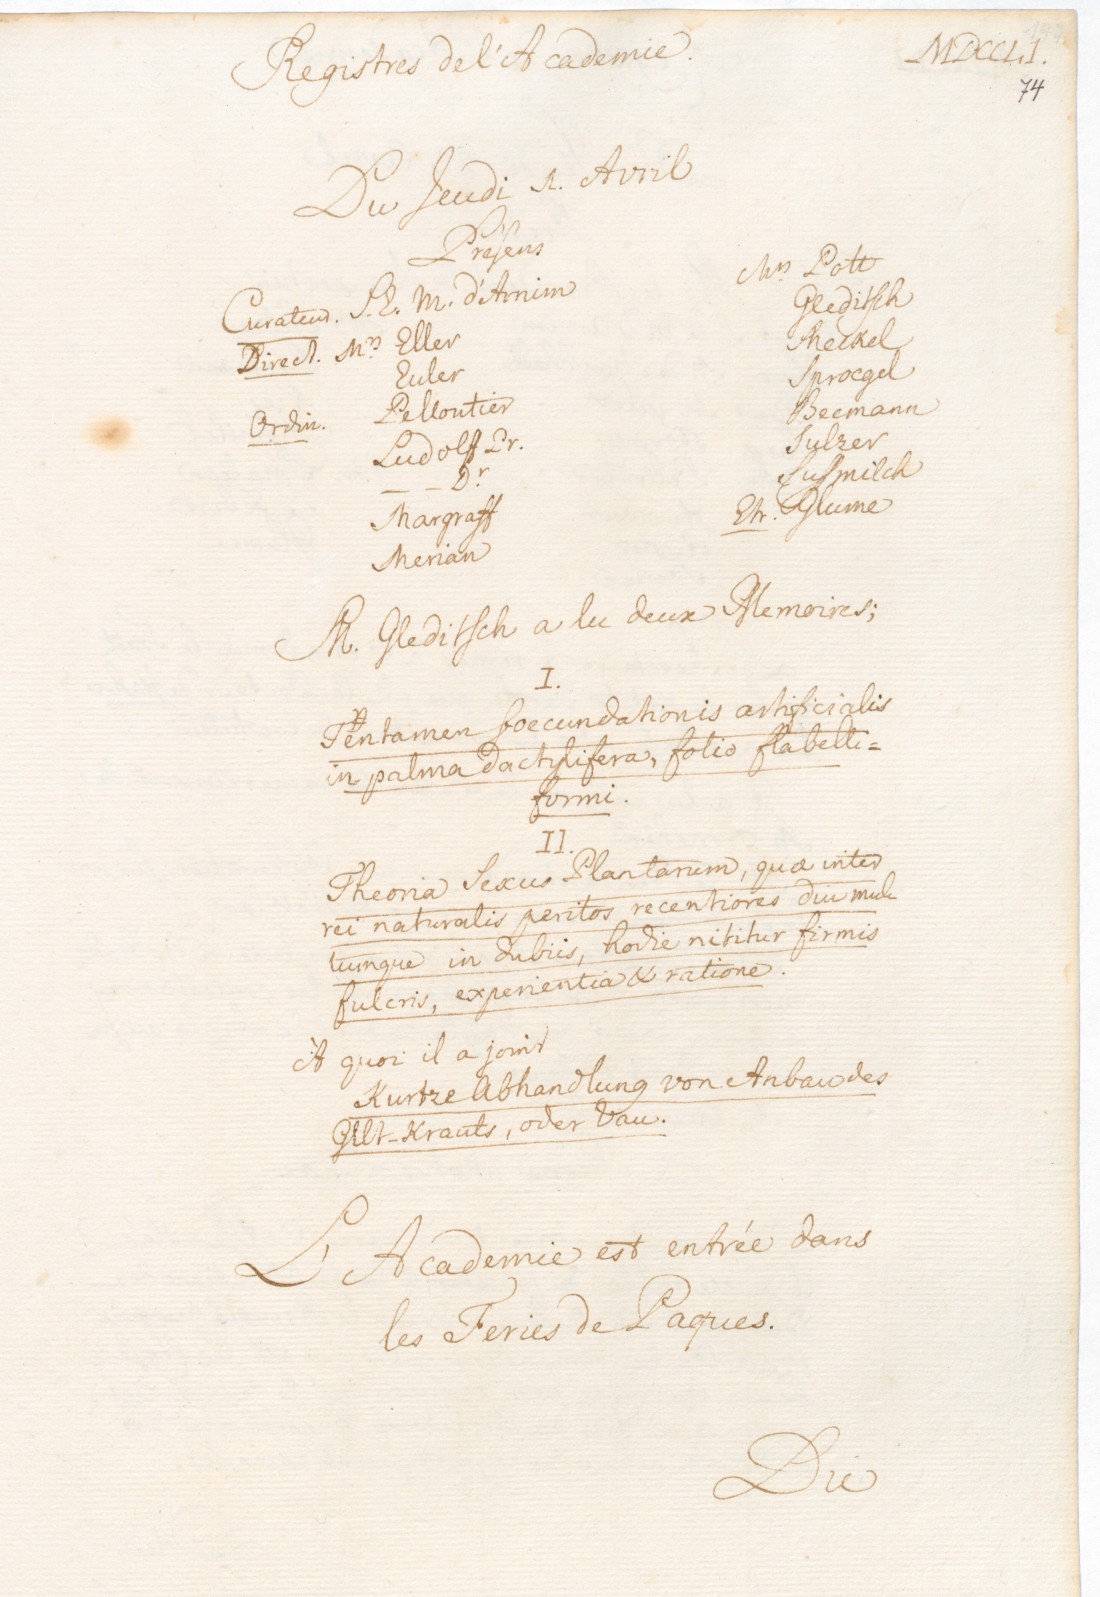 Registres de l'Academie.
MDCCLI.
74
Du Jeudi 1. Avril
Présens
Curateur. S. E. M. d'Arnim
Direct. Mrs Eller
Euler
Ordin. Pelloutier
Ludolff Pr.
— — Dr
Margraff
Merian
Mrs Pott
Gleditsch
Meckel
Sproegel
Becmann
Sulzer
Sussmilch
Etr. Blume
M. Gleditsch a lu deux Memoires;
I.
Tentamen foecundationis artificialis
in palma dactylifera, folio flabelli=
formi.
II.
Theoria Sexus Plantarum, quæ inter
rei naturalis peritos recentiores diu mul
tumque in dubiis, hodie nititur firmis
fulcris, experientia & ratione.
À quoi il a joint
Kurtze Abhandlung von Anbau des
Gilb-Krauts, oder Vau.
L'Academie est entrée dans
les Feries de Paques.
Du